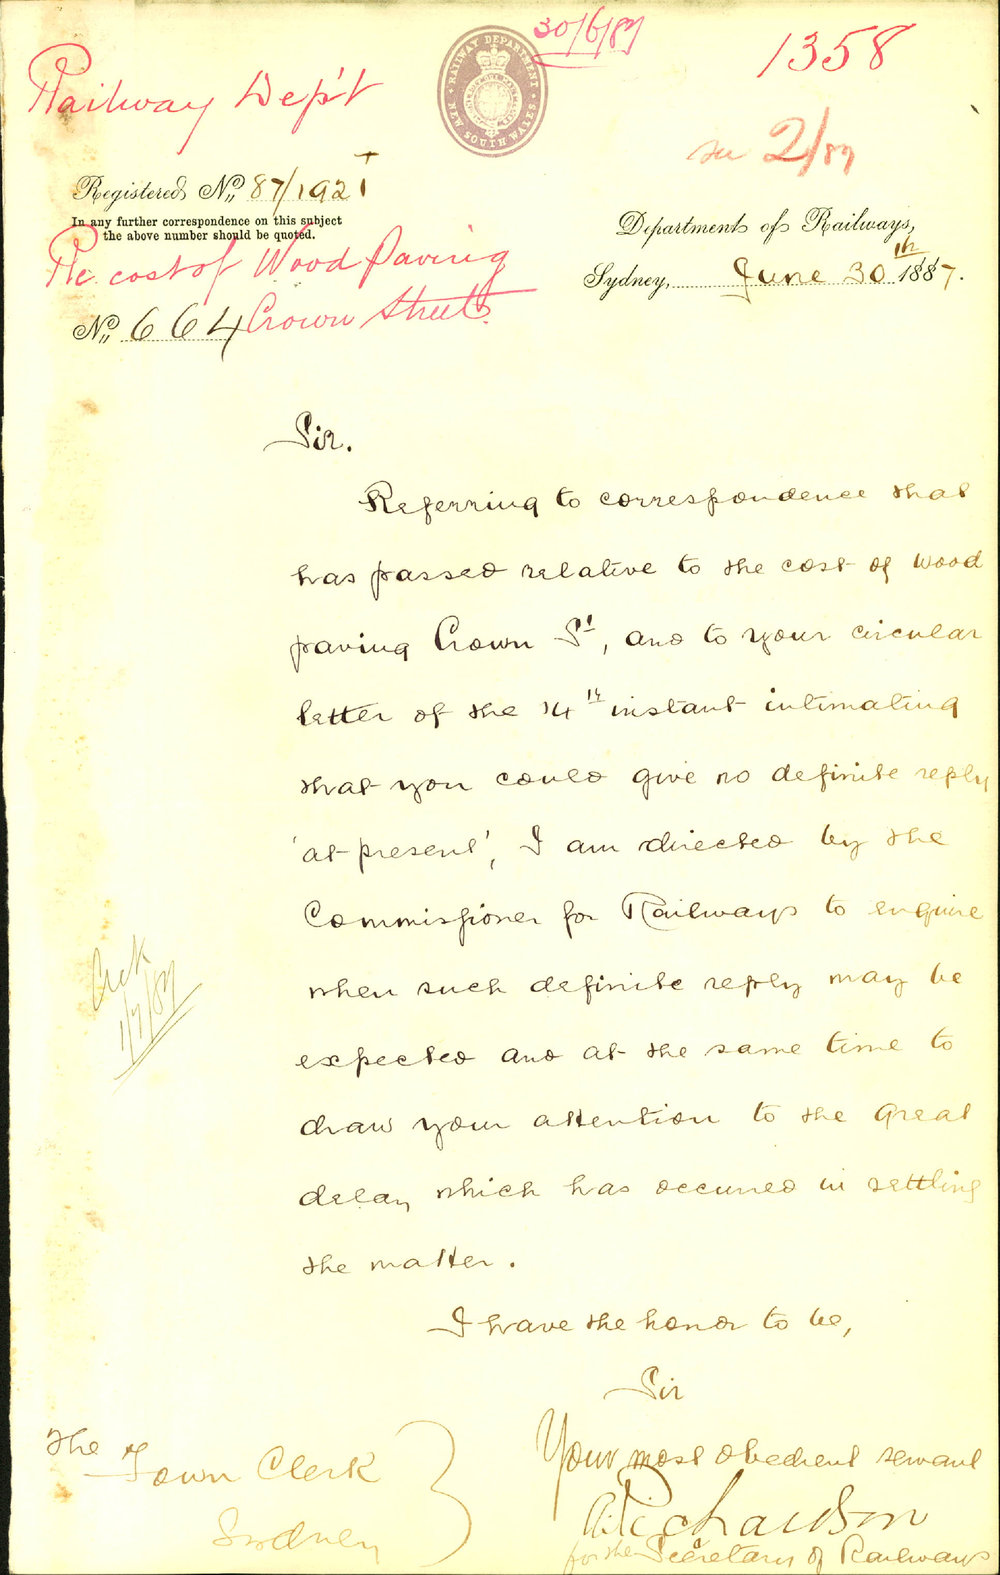 30/6/87
1358
Railway Dep't
RAILWAY DEPARTMENT
NEW SOUTH WALES
2/87
Registered No. 87/1921
In any further correspondence on this subject
the above number should be quoted.
Department of Railways,
Re cost of Wood Paving
Sydney, June 30th 1887.
No. 664 Crown Street
Sir.
Referring to correspondence that
has passed relative to the cost of wood
paving Crown St, and to your circular
letter of the 14th instant intimating
that you could give no definite reply
'at present', I am directed by the
Commissioner for Railways to enquire
when such definite reply may be
expected and at the same time to
draw your attention to the great
delay which has occurred in settling
the matter.
Ack
1/7/87
I have the honor to be,
Sir
Your most obedient servant
The
Town Clerk
Sydney
Richardson
for the Secretary of Railways